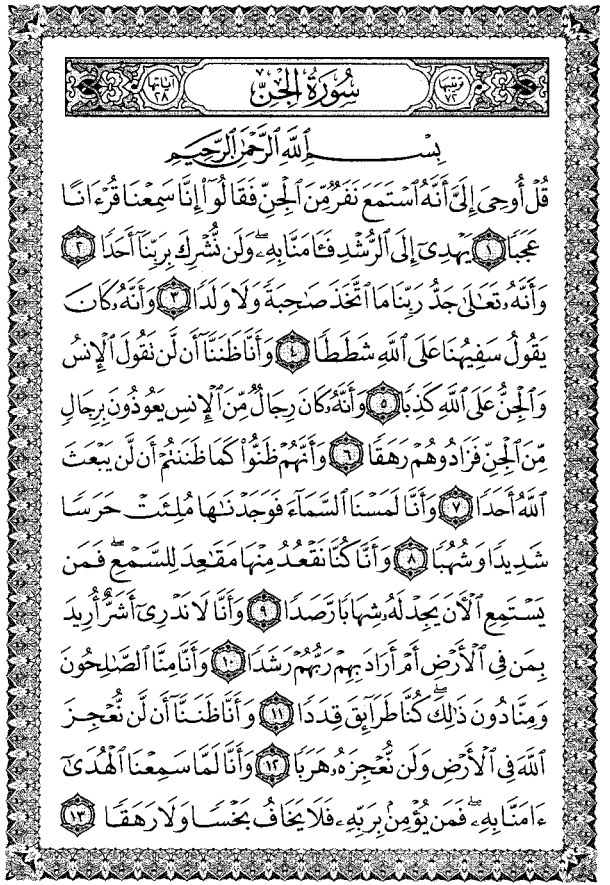 ترتيبها ٧٢ سُورَةُ الجِنّ آياتها ٢٨
بِسْمِ ٱللَّهِ ٱلرَّحْمَٰنِ ٱلرَّحِيمِ
قُلْ أُوحِىَ إِلَىَّ أَنَّهُ ٱسْتَمَعَ نَفَرٌ مِّنَ ٱلْجِنِّ فَقَالُوٓا۟ إِنَّا سَمِعْنَا قُرْءَانًا
عَجَبًا ١ يَهْدِىٓ إِلَى ٱلرُّشْدِ فَـَٔامَنَّا بِهِۦ ۖ وَلَن نُّشْرِكَ بِرَبِّنَآ أَحَدًا ٢
وَأَنَّهُۥ تَعَٰلَىٰ جَدُّ رَبِّنَا مَا ٱتَّخَذَ صَٰحِبَةً وَلَا وَلَدًا ٣ وَأَنَّهُۥ كَانَ
يَقُولُ سَفِيهُنَا عَلَى ٱللَّهِ شَطَطًا ٤ وَأَنَّا ظَنَنَّآ أَن لَّن نَقُولَ ٱلْإِنسُ
وَٱلْجِنُّ عَلَى ٱللَّهِ كَذِبًا ٥ وَأَنَّهُۥ كَانَ رِجَالٌ مِّنَ ٱلْإِنسِ يَعُوذُونَ بِرِجَالٍ
مِّنَ ٱلْجِنِّ فَزَادُوهُمْ رَهَقًا ٦ وَأَنَّهُمْ ظَنُّوا۟ كَمَا ظَنَنتُمْ أَن لَّن يَبْعَثَ
ٱللَّهُ أَحَدًا ٧ وَأَنَّا لَمَسْنَا ٱلسَّمَآءَ فَوَجَدْنَٰهَا مُلِئَتْ حَرَسًا
شَدِيدًا وَشُهُبًا ٨ وَأَنَّا كُنَّا نَقْعُدُ مِنْهَا مَقَٰعِدَ لِلسَّمْعِ ۖ فَمَن
يَسْتَمِعِ ٱلْـَٔانَ يَجِدْ لَهُۥ شِهَابًا رَّصَدًا ٩ وَأَنَّا لَا نَدْرِىٓ أَشَرٌّ أُرِيدَ
بِمَن فِى ٱلْأَرْضِ أَمْ أَرَادَ بِهِمْ رَبُّهُمْ رَشَدًا ١٠ وَأَنَّا مِنَّا ٱلصَّٰلِحُونَ
وَمِنَّا دُونَ ذَٰلِكَ ۖ كُنَّا طَرَآئِقَ قِدَدًا ١١ وَأَنَّا ظَنَنَّآ أَن لَّن نُّعْجِزَ
ٱللَّهَ فِى ٱلْأَرْضِ وَلَن نُّعْجِزَهُۥ هَرَبًا ١٢ وَأَنَّا لَمَّا سَمِعْنَا ٱلْهُدَىٰٓ
ءَامَنَّا بِهِۦ ۖ فَمَن يُؤْمِنۢ بِرَبِّهِۦ فَلَا يَخَافُ بَخْسًا وَلَا رَهَقًا ١٣